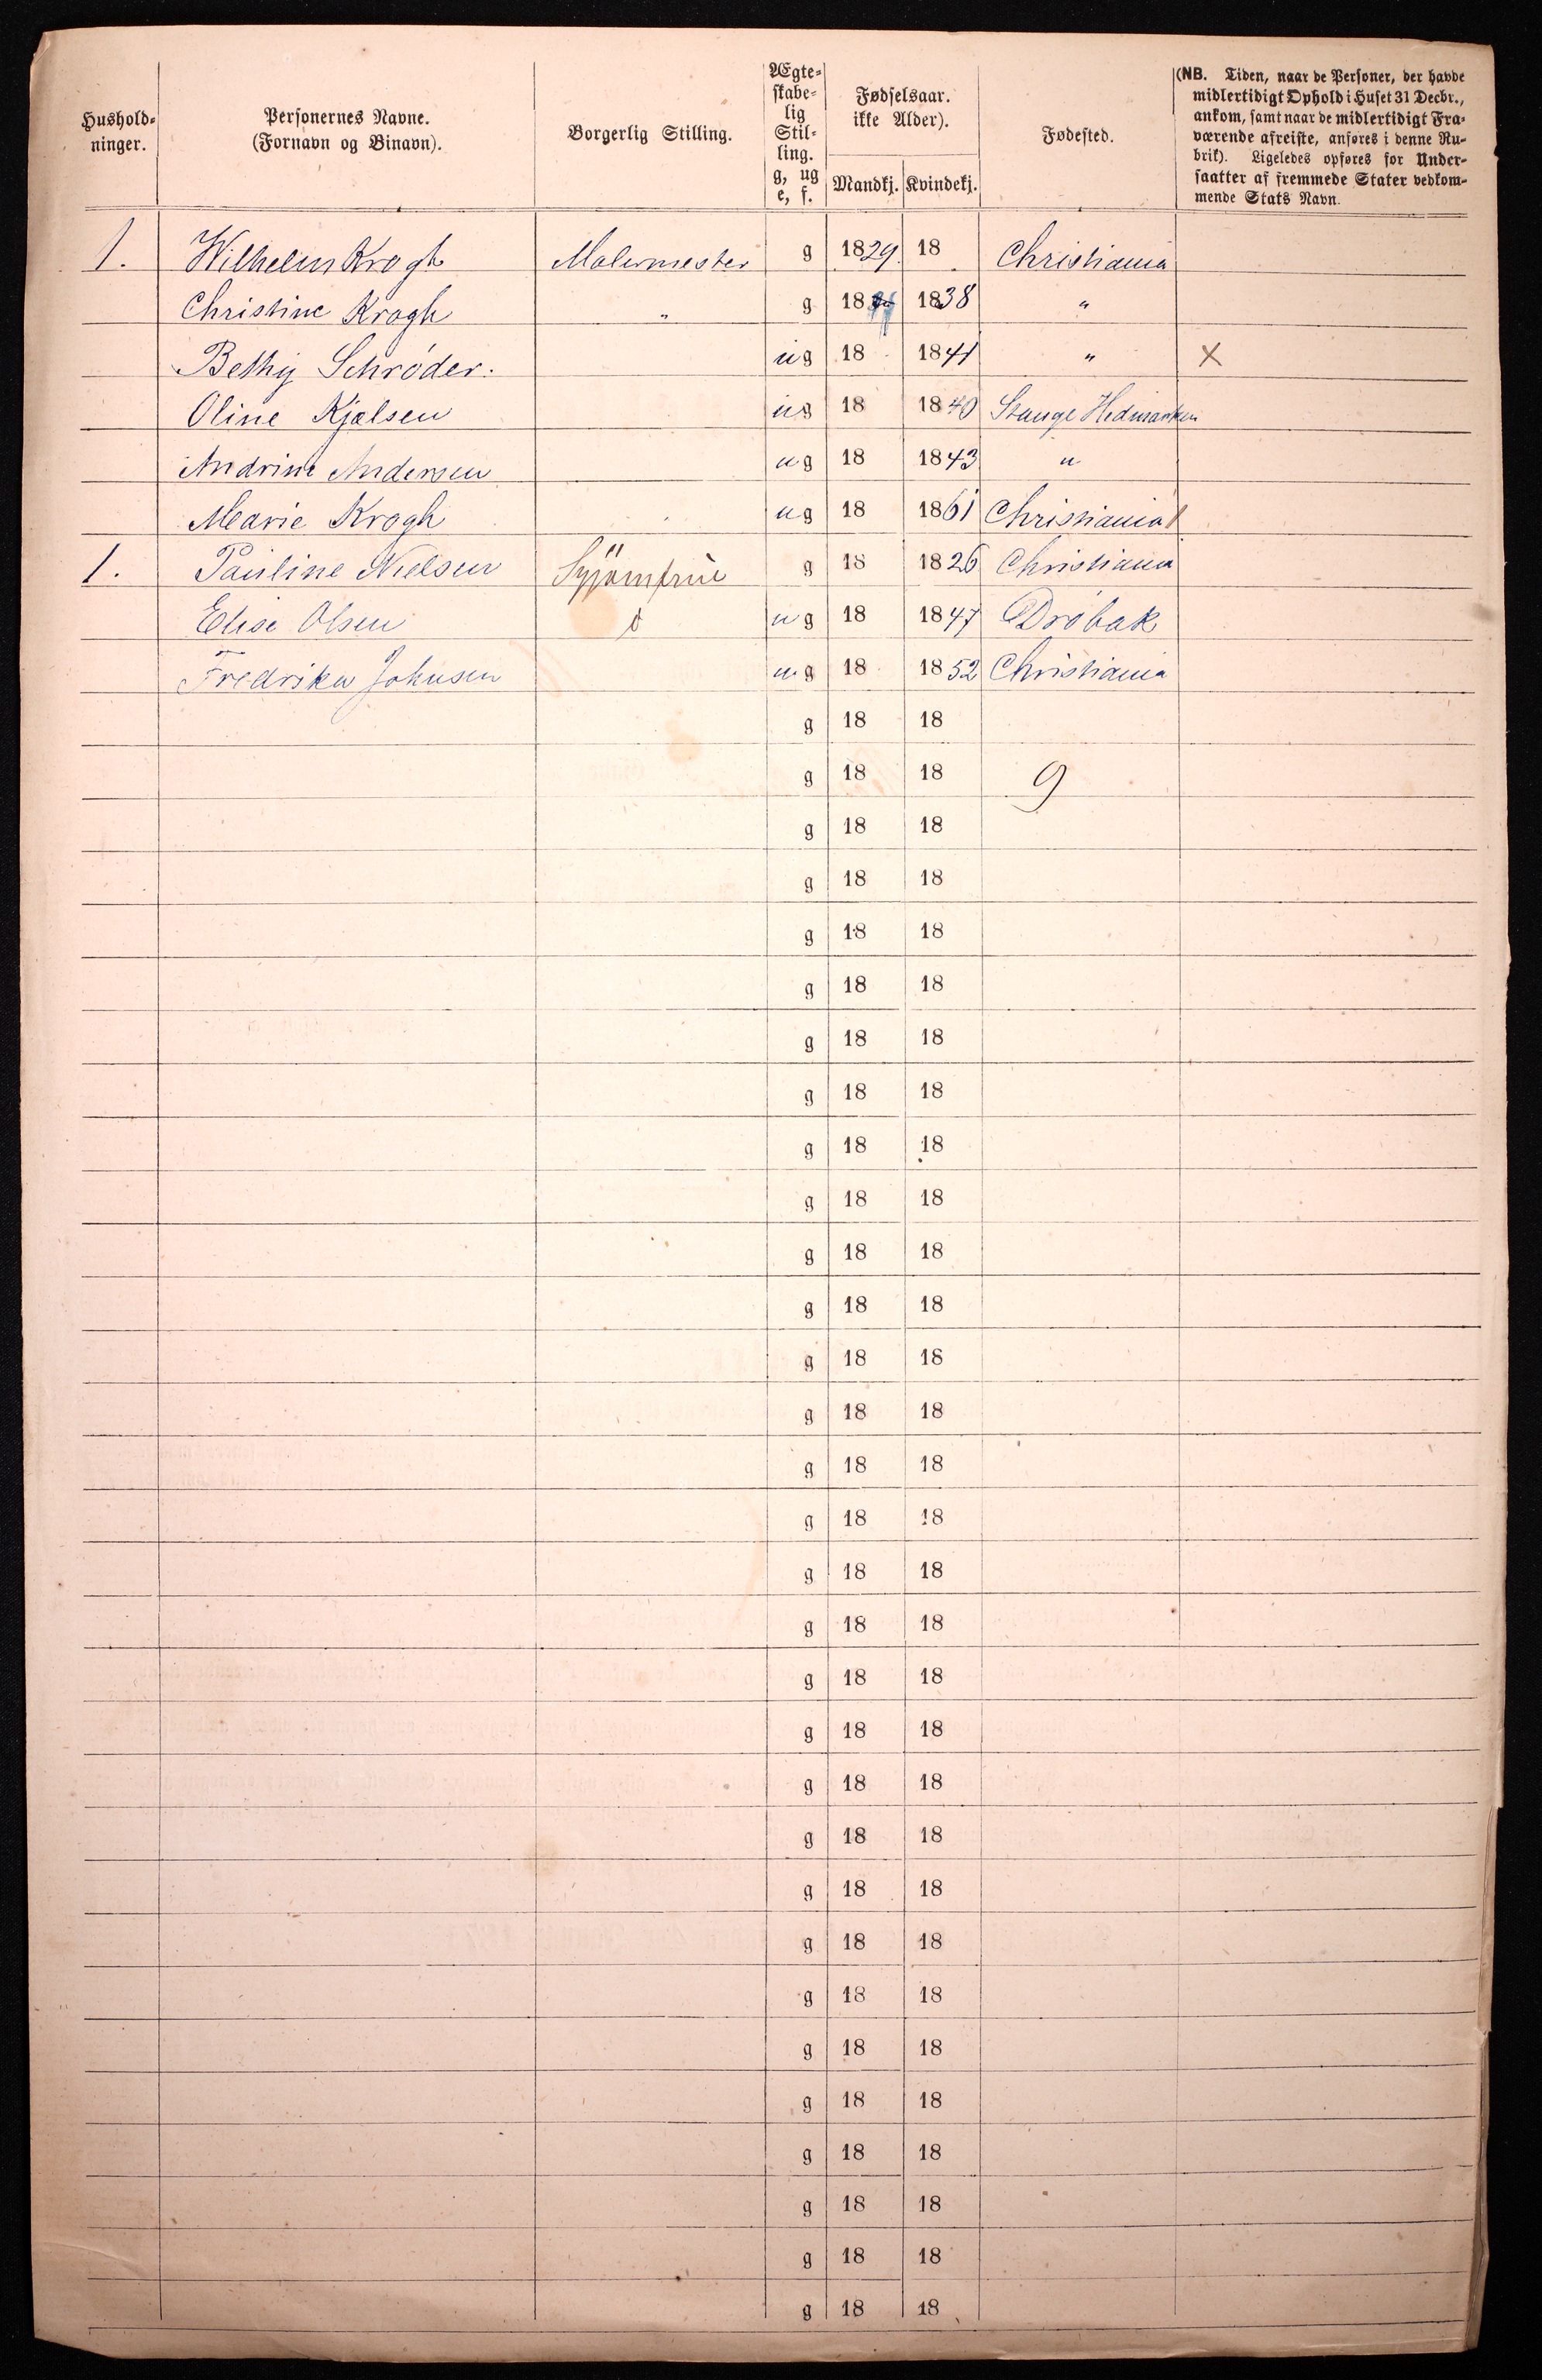 Hushold-
ninger.
Personernes Navne.
(Fornavn og Binavn).
Borgerlig Stilling.
Ægte-
skabe-
lig
Stil-
ling.
g, ug
e, f.
Fødselsaar.
ikke Alder).
Mandkj. Kvindekj.
Fødested.
(NB. Tiden, naar de Personer, der havde
midlertidigt Ophold i Huset 31 Decbr.,
ankom, samt naar de midlertidigt Fra-
værende afreiste, anføres i denne Ru-
brik). Ligeledes opføres for Under-
saatter af fremmede Stater vedkom-
mende Stats Navn.
1. Wilhelm Krogh Malermester g 1829. 18 Christiania
Christine Krogh " g 18 1838 "
Bethy Schrøder. ug 18 1841 " X
Oline Kjælsen ug 18 1840 Stange Hedmarken
Andrine Andersen ug 18 1843 "
Marie Krogh ug 18 1861 Christiania
1. Pauline Nielsen Syjomfrue g 18 1826 Christiania
Elise Olsen d ug 18 1847 Drøbak
Fredrika Johnsen ug 18 1852 Christiania
g 18 18
g 18 18 9
g 18 18
g 18 18
g 18 18
g 18 18
g 18 18
g 18 18
g 18 18
g 18 18
g 18 18
g 18 18
g 18 18
g 18 18
g 18 18
g 18 18
g 18 18
g 18 18
g 18 18
g 18 18
g 18 18
g 18 18
g 18 18
g 18 18
g 18 18
g 18 18
g 18 18
g 18 18
g 18 18
g 18 18
g 18 18